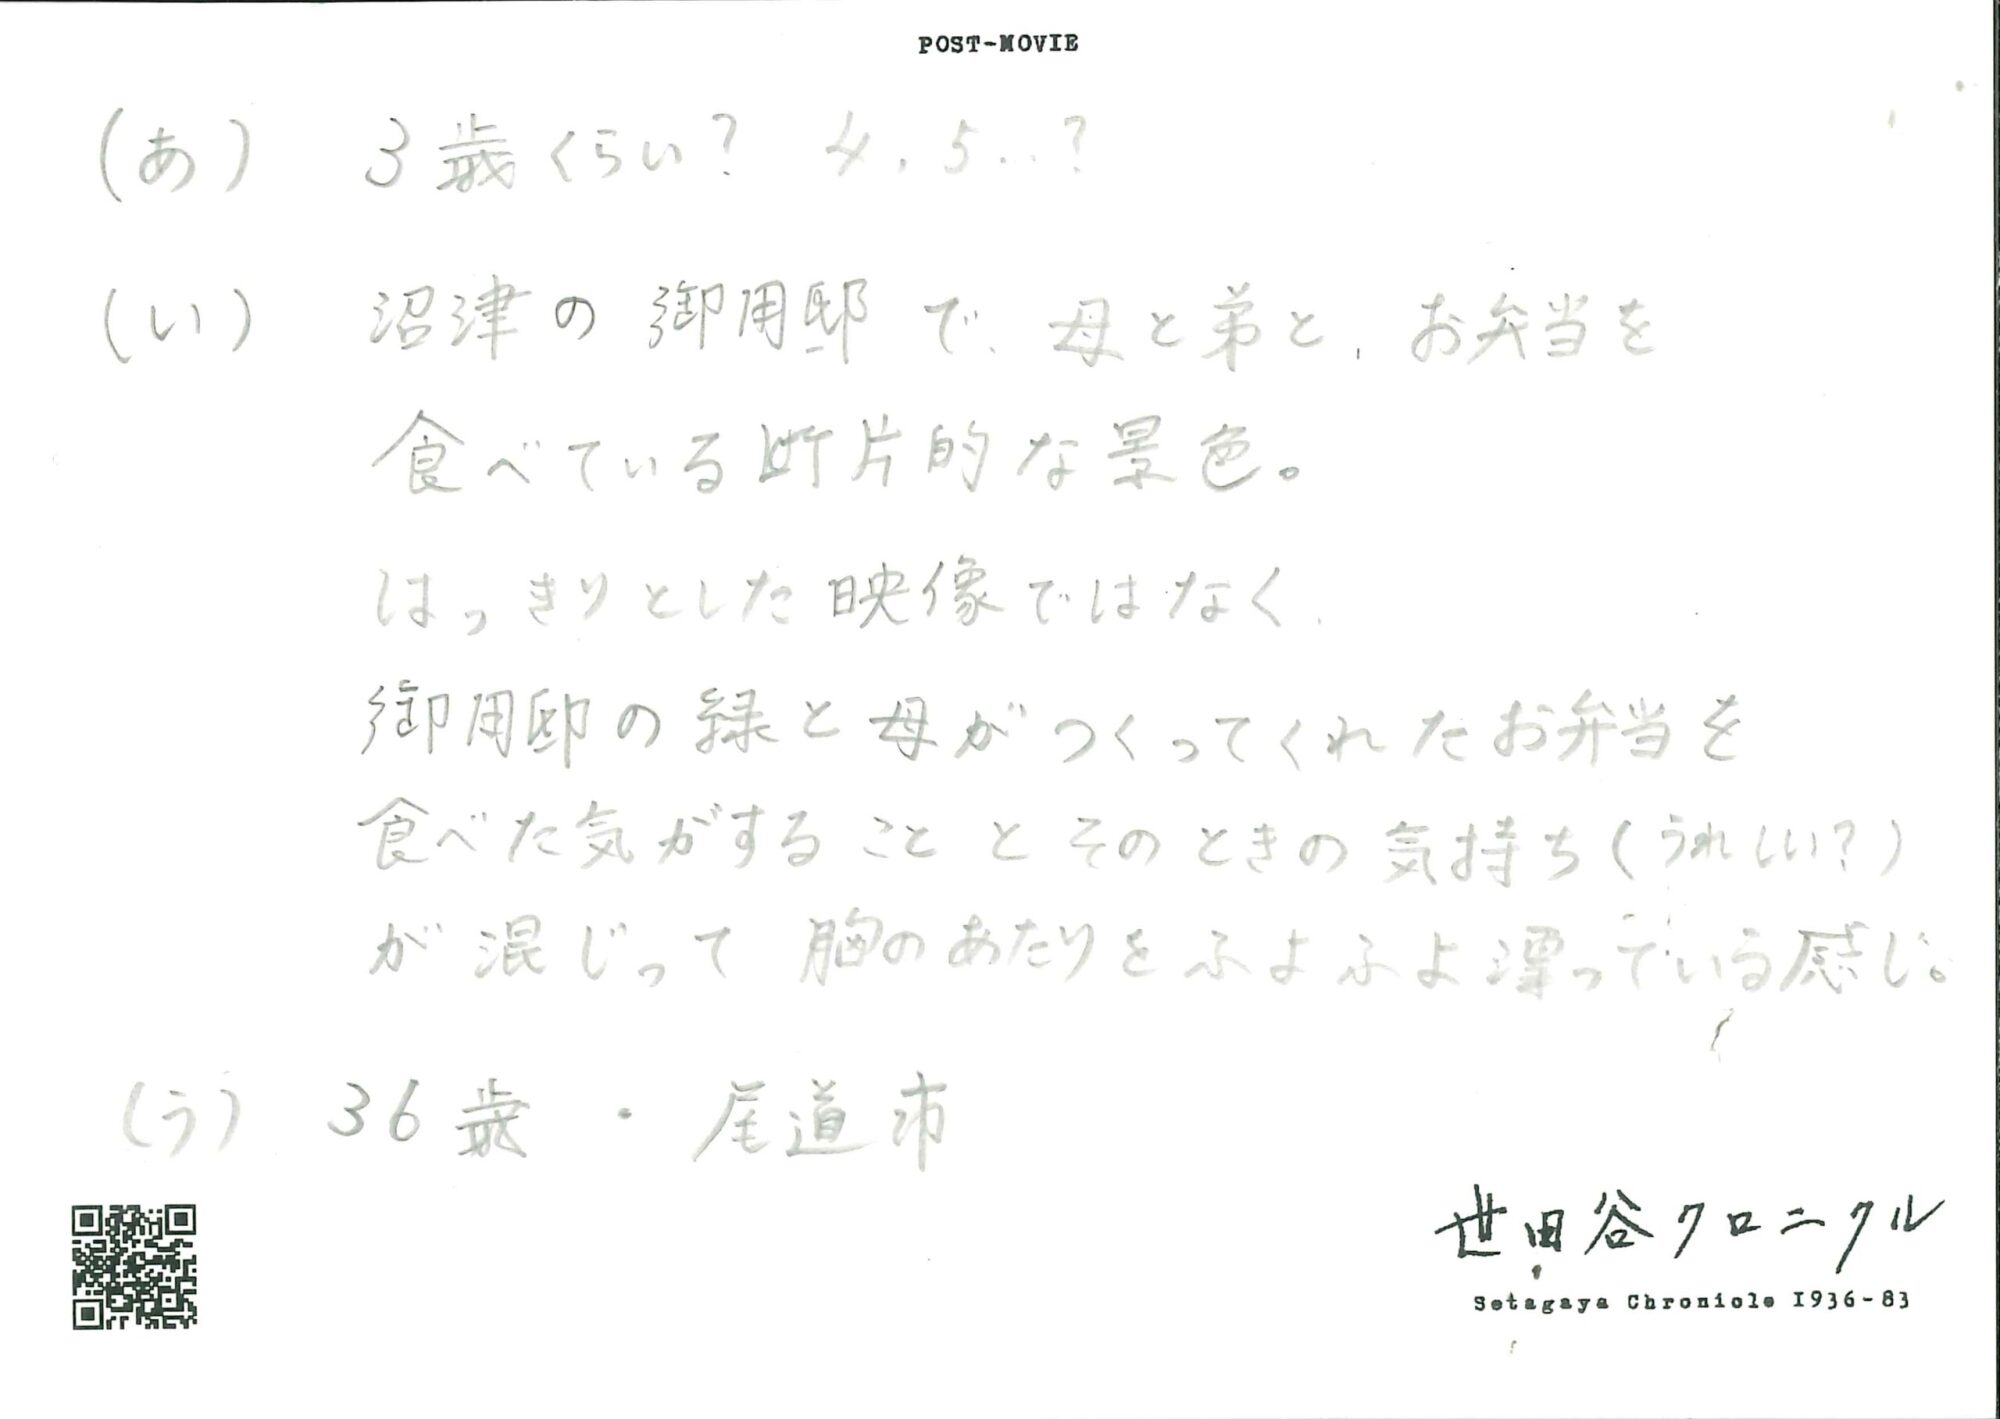 POST-MOVIE
(あ) 3歳くらい? 4,5...?
(い) 沼津の御用邸で、母と弟と、お弁当を
食べている断片的な景色。
はっきりとした映像ではなく、
御用邸の緑と母がつくってくれたお弁当を
食べた気がすることとそのときの気持ち(うれしい?)
が混じって胸のあたりをふよふよ漂っている感じ。
(う) 36歳・尾道市
世田谷クロニクル
Setagaya Chronicle 1936-83